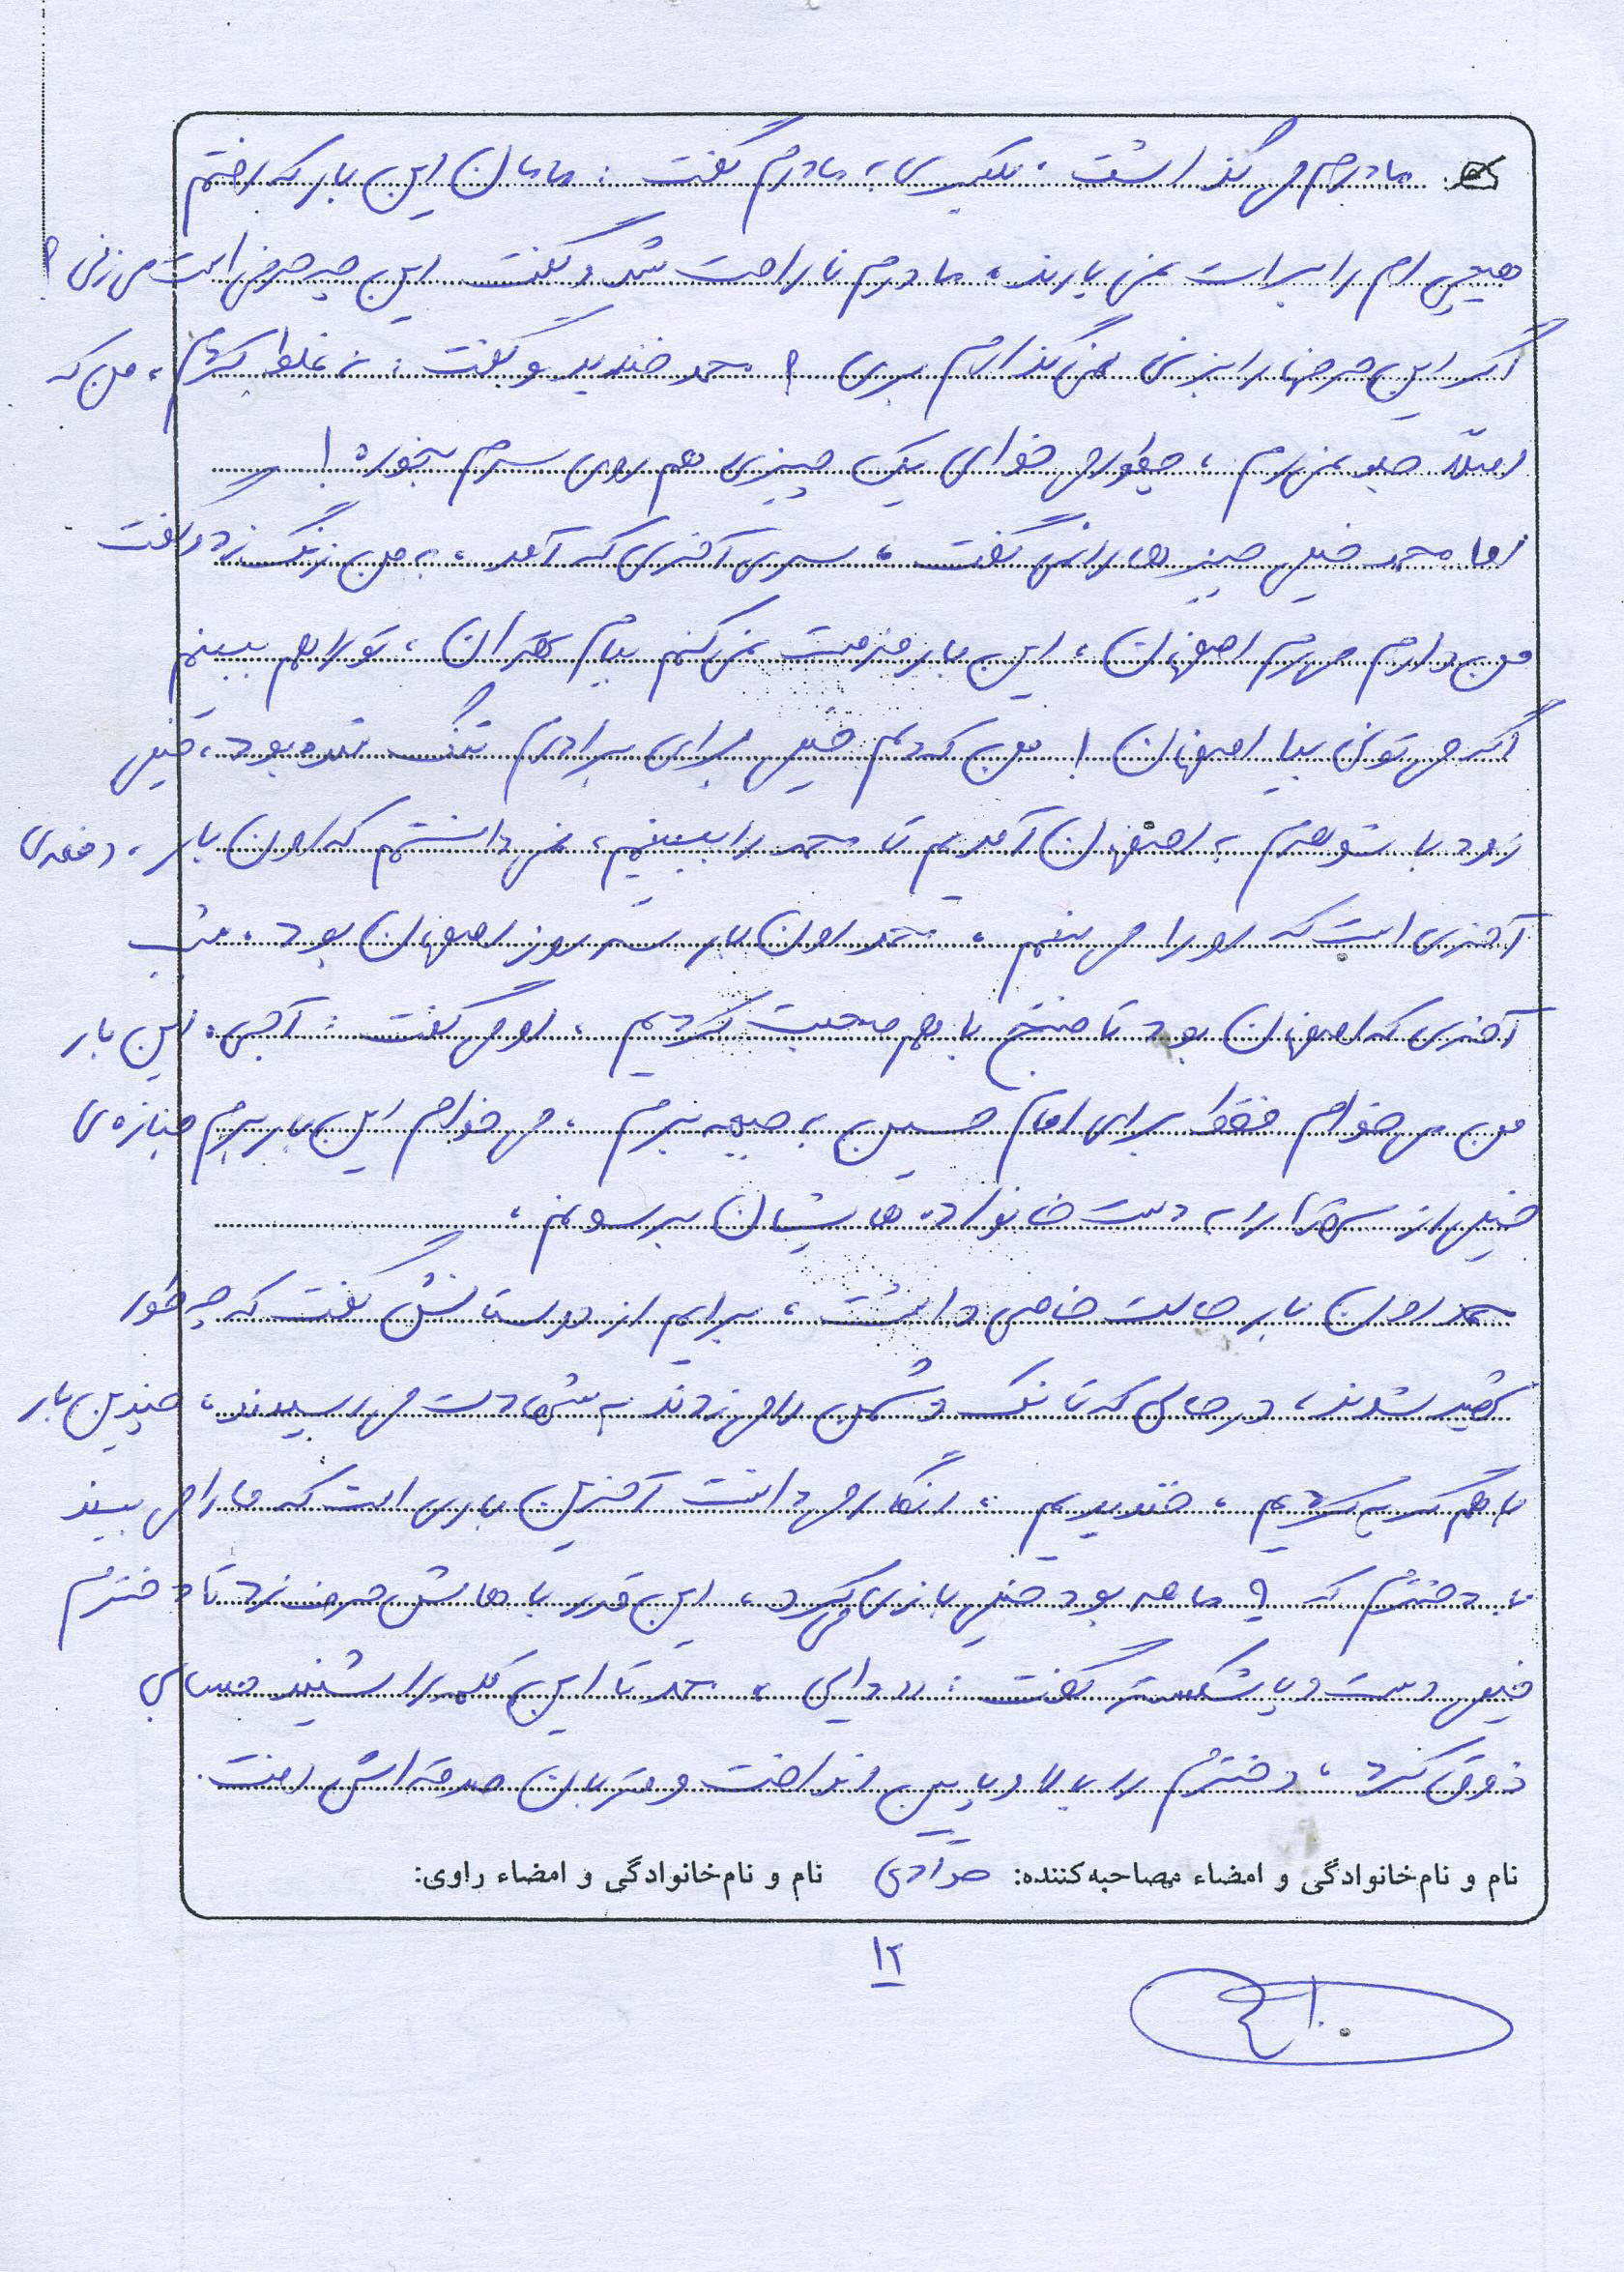 مادرم می گذاشت. یکبری به مادرم گفت: مامان این بار که رفتم
هیچی ام را برات نمی یارند، مادرم ناراحت شد و گفت این چه حرفی است می زنی؟
اگر این حرفها را بزنی نمی گذارم بری؟ محمد خندید و گفت: نه غلط کردم، من که
اصلاً جلو نمی رم، چطور می خوای یک چیزی هم روی سرم بخوره!
اما محمد خیلی چیزها را نمی گفت، سری آخری که آمد، به من زنگ زد و گفت
من دارم می رم اصفهان، این بار فرصت نمی کنم بیام تهران، تو را هم ببینم
اگر می تونی بیا اصفهان! من که دلم خیلی برای برادرم تنگ شده بود، خیلی
زود با شوهرم به اصفهان آمدیم تا محمد را ببینیم، نمی دانستم که اون بار، دفعه ی
آخری است که او را می بینم، محمد اون بار سه روز اصفهان بود، شب
آخری که اصفهان بود تا صبح با هم صحبت کردیم، او می گفت: آجی، این بار
من می خوام فقط برای امام حسین به جبهه برم، می خوام این بار برم جنازه ی
خیلی از شهدا را به دست خانواده هایشان برسونم،
محمد اون بار حالت خاصی داشت، برایم از دوستانش گفت که چه طور
شهید شدند، در حالی که تانک دشمن را می زدند به شهادت می رسیدند، چندین بار
با هم گریه کردیم، خندیدیم، انگار می دانست آخرین باری است که ما را می بیند
با دخترم که ۹ ماهه بود خیلی بازی می کرد، این قدر باهاش حرف زد تا دخترم
خیلی دست و پا شکسته گفت: «دایی»، محمد تا این کلمه را شنید حسابی
ذوق کرد، دخترم را بالا و پایین انداخت و قربان صدقه اش رفت.
نام و نام خانوادگی و امضاء مصاحبه کننده: مرادی نام و نام خانوادگی و امضاء راوی:
۱۲